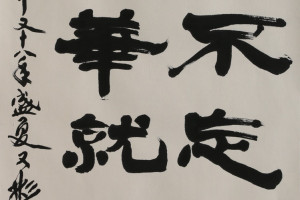 不忘
華就
五十八年盛夏又彬